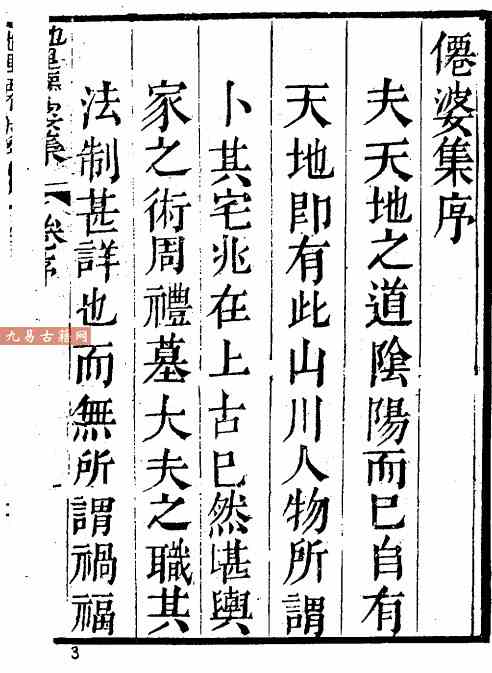 僊婆集序
夫天地之道陰陽而已自有
天地即有此山川人物所謂
卜其宅兆在上古已然堪輿
家之術周禮墓大夫之職其
法制甚詳也而無所謂禍福
集 卷序
九易古籍网
3